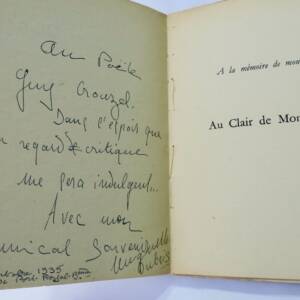 Au Poète
Guy Crouzel.
Dans l'espoir que
n regard critique
me sera indulgent...
Avec mon
mical Souvenir
1935
A la mémoire de mon
Au Clair de Mon